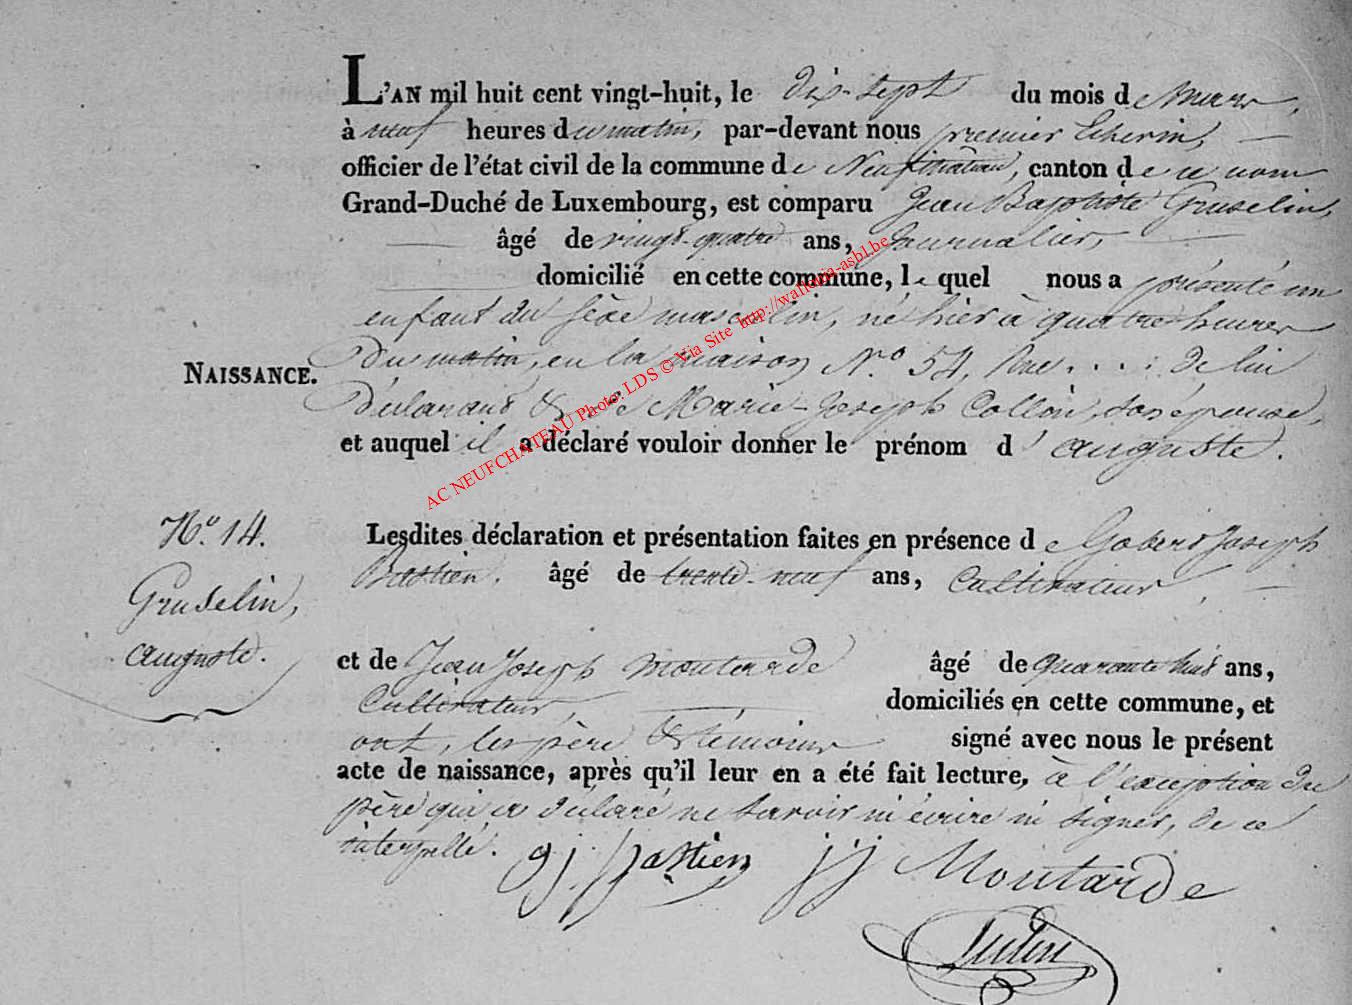 L'AN mil huit cent vingt-huit, le dix-sept du mois de mars,
à neuf heures du matin, par-devant nous premier Echevin,
officier de l'état civil de la commune de Neufchâteau, canton de ce nom
Grand-Duché de Luxembourg, est comparu Jean Baptiste Gruselin,
âgé de vingt-quatre ans, Journalier,
domicilié en cette commune, lequel nous a présenté un
enfant du sexe masculin, né hier à quatre heures
Du matin, en la maison N.o 54, Rue . . . : de lui
Déclarant & de Marie-Joseph Collin, son épouse,
NAISSANCE.
et auquel il a déclaré vouloir donner le prénom d'auguste.
AC NEUFCHATEAU Photo: LDS © Via Site http://wallonia-asbl.be
N.o 14.
Gruselin,
auguste.
Lesdites déclaration et présentation faites en présence de Gobert Joseph
Bastien. âgé de trente-neuf ans, Cultivateur,
et de Jean Joseph Moutarde âgé de quarante huit ans,
Cultivateur, domiciliés en cette commune, et
ont, les père & témoins signé avec nous le présent
acte de naissance, après qu'il leur en a été fait lecture, à l'exception du
père qui a déclaré ne savoir ni écrire ni signer, de ce
interpellé.
g j. Bastien j j Moutarde